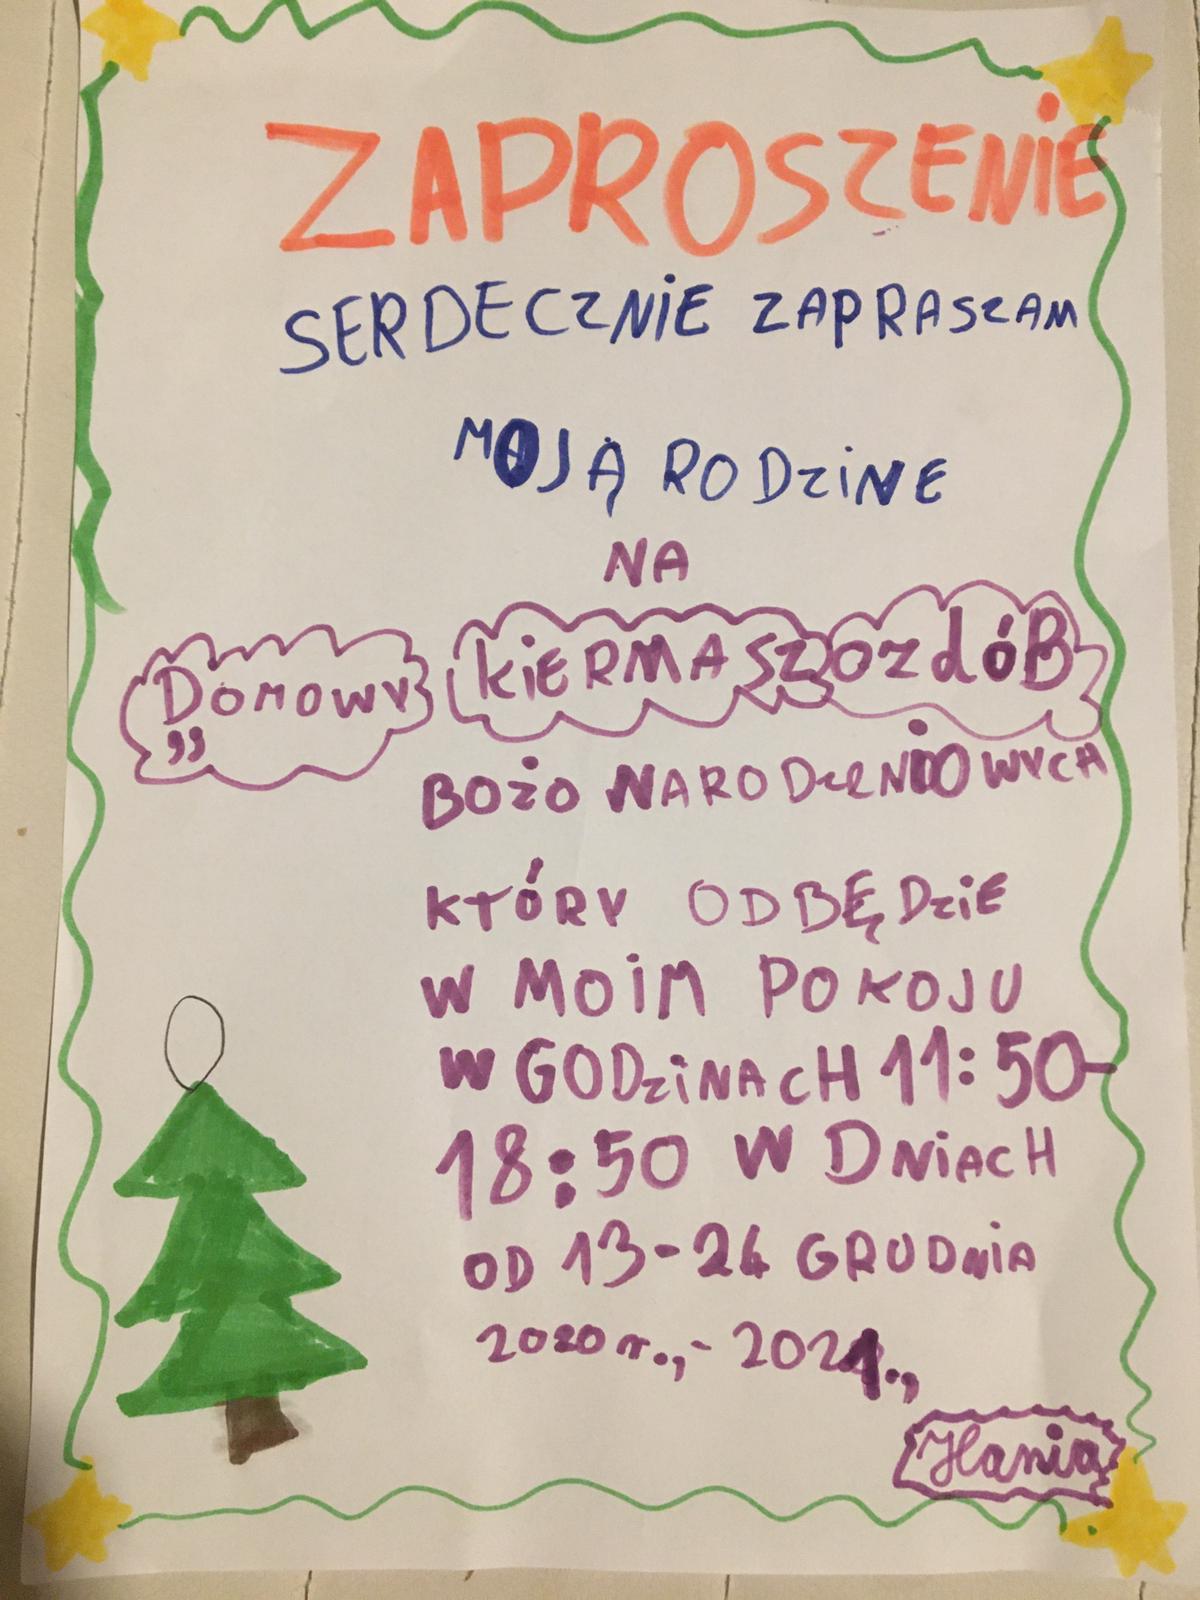 ZAPROSZENIE
SERDECZNIE ZAPRASZAM
MOJĄ RODZINE
NA
DOMOWY KIERMASZ OZdÓB
,,
BOŻO NARODZENIOWYCH
KTÓRY ODBĘDZIE
W MOIM POKOJU
W GODZINACH 11:50-
18:50 W DNIACH
OD 13-24 GRUDNIA
2020 r.,- 2021.,
Hania